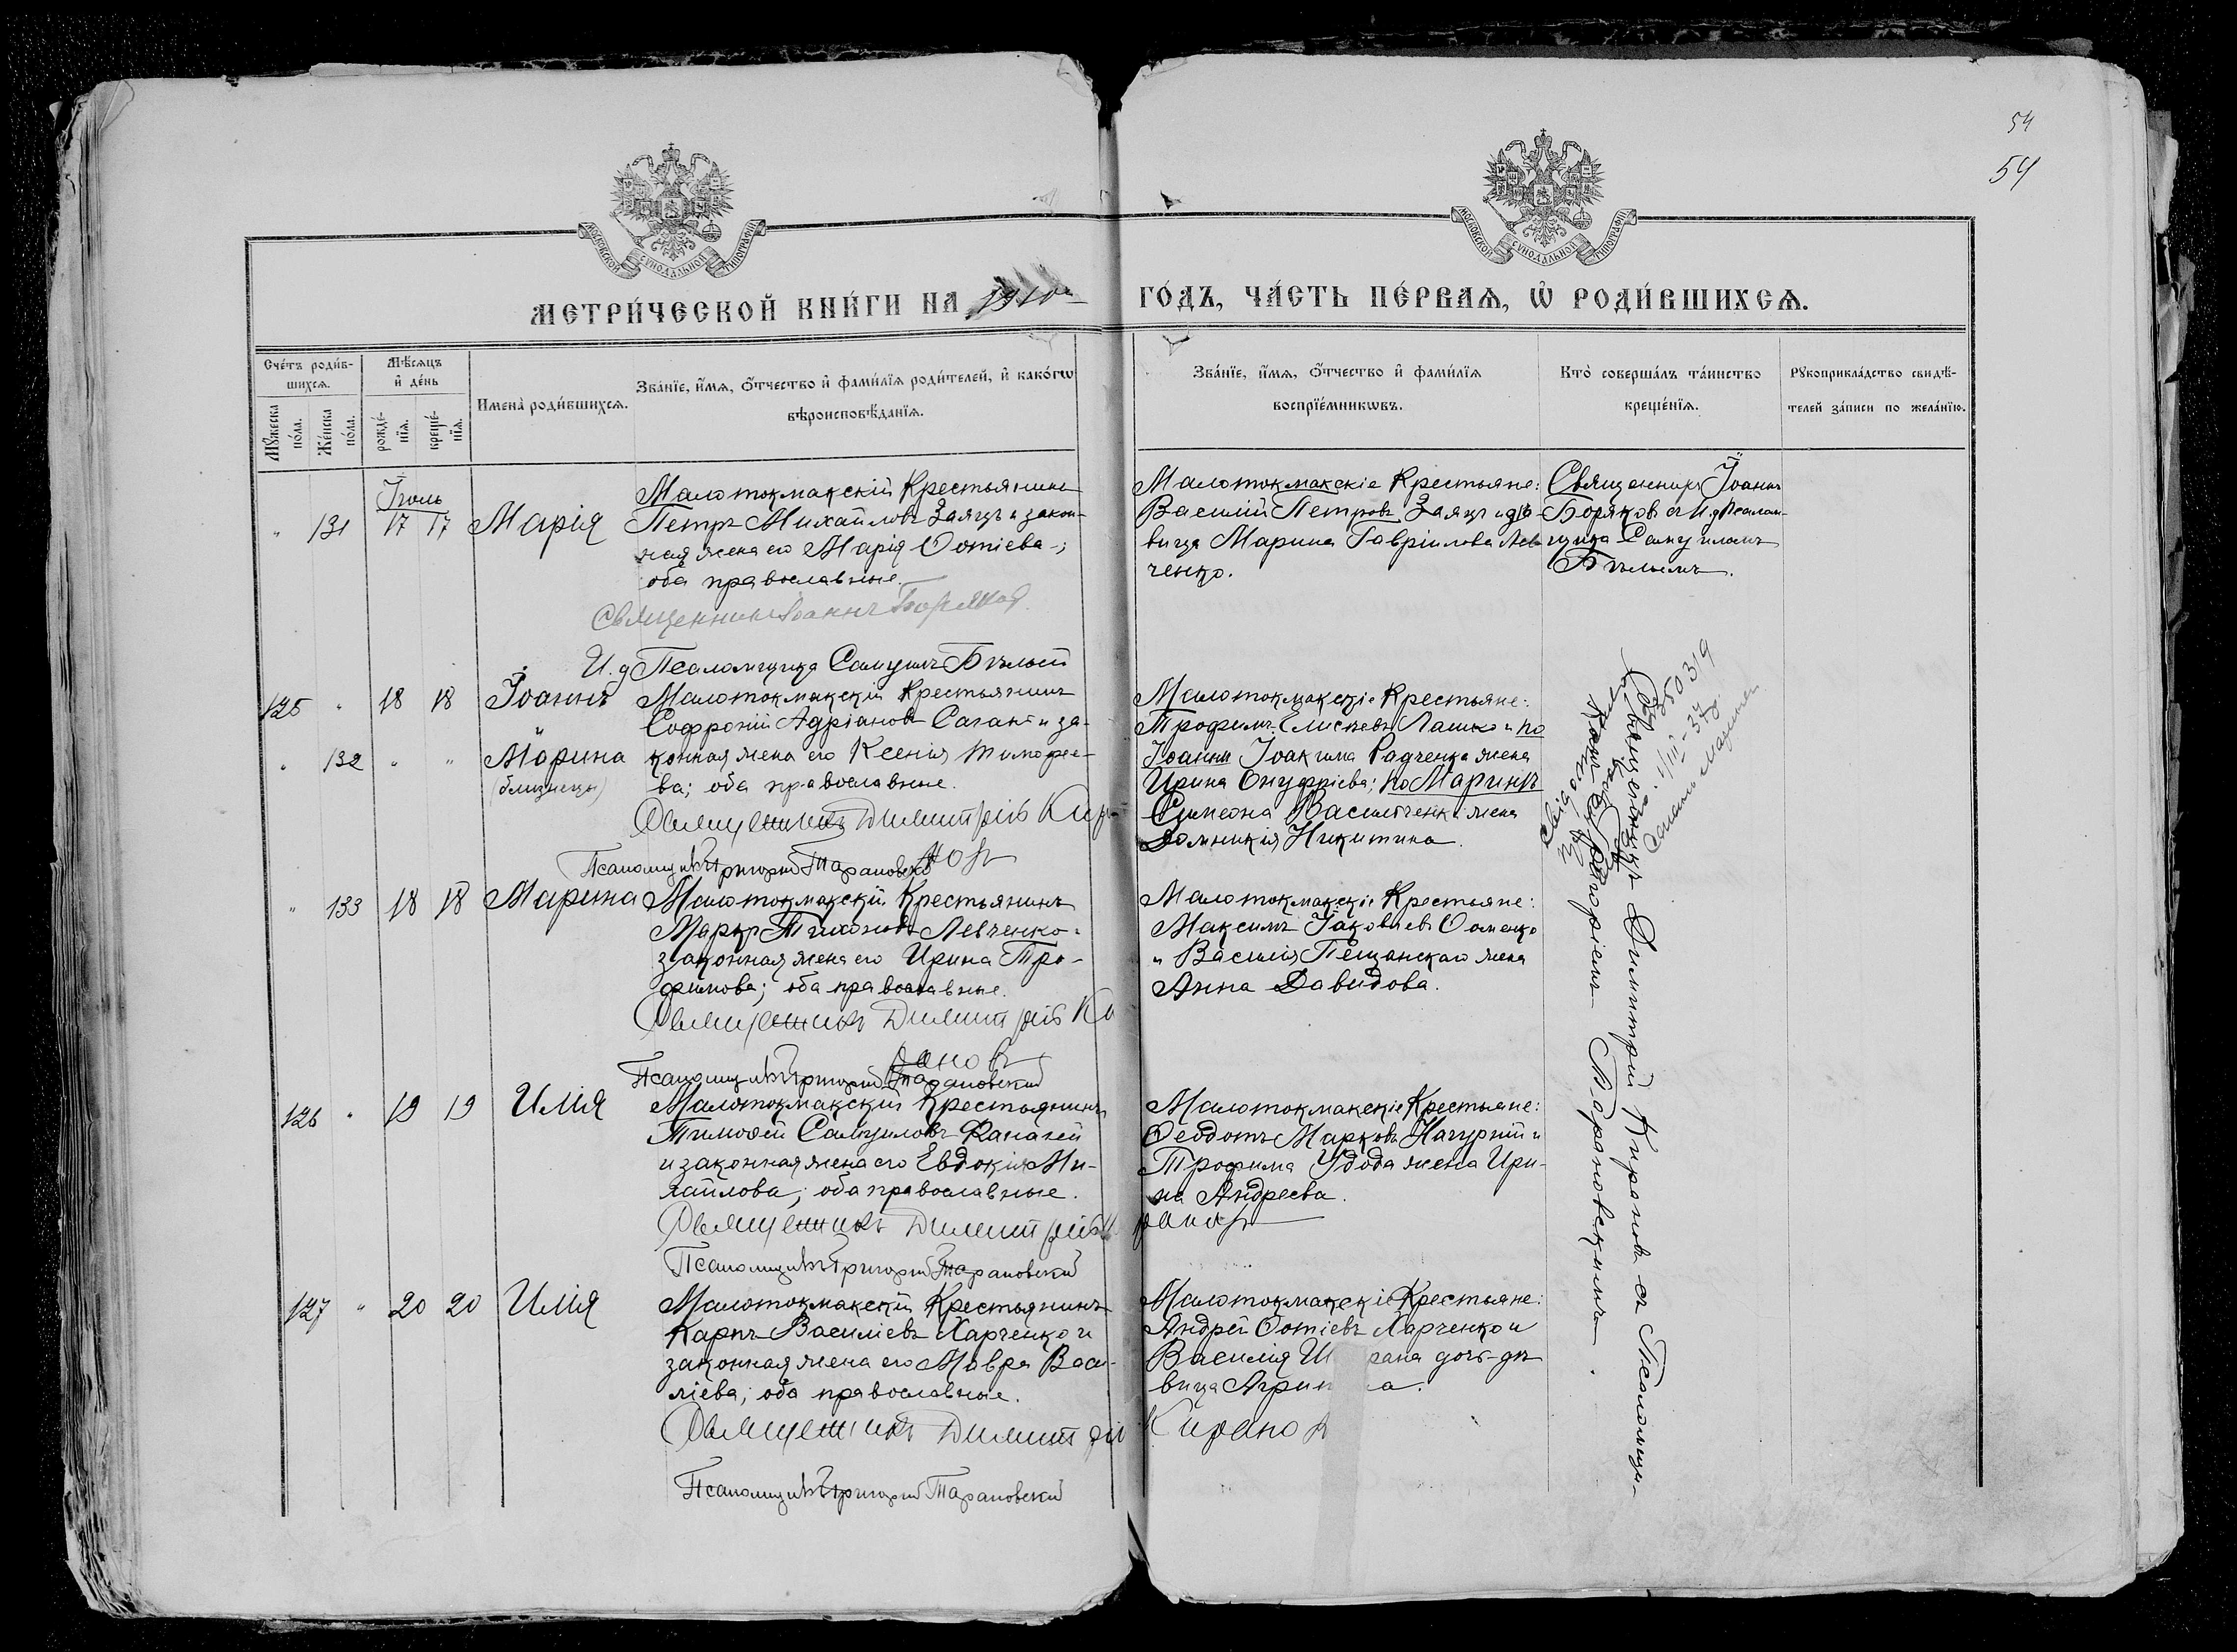 54
54
МОСКОВСКОЙ СУНОДАЛЬНОЙ ТИПОГРАФІИ
МОСКОВСКОЙ СУНОДАЛЬНОЙ ТИПОГРАФІИ
МЕТРИ́ЧЕСКОЙ КНИ́ГИ НА 1910й ГО́ДЪ, ЧА́СТЬ ПЕ́РВАѦ, Ѡ҆ РОДИ́ВШИХСѦ.
Сче́тъ роди́в-
шихсѧ.
Мꙋ́жеска по́ла.
Же́нска по́ла.
Мѣ́сѧцъ
и҆ де́нь
рожде́-
нїѧ.
креще́-
нїѧ.
И҆мена̀ роди́вшихсѧ.
Зва́нїе, и҆́мѧ, ѻ҆́тчество и҆ фами́лїѧ роди́телей, и҆ како́гѡ
вѣроисповѣ́данїѧ.
Зва́нїе, и҆́мѧ, ѻ҆́тчество и҆ фами́лїѧ
воспрїе́мникѡвъ.
Кто̀ соверша́лъ та́инство
креще́нїѧ.
Рꙋкоприкла́дство свидѣ́-
телей за́писи по жела́нїю.
Іюль
" 131 17 17 Марія
Малотокмакскій Крестьянинъ
Петръ Михайловъ Заяцъ и закон-
ная жена его Марія Фотіева;
оба православные.
Священникъ Іоаннъ Боряковъ
И.д Псаломщика Самуилъ Бѣлый
Малотокмакскіе Крестьяне:
Василій Петровъ Заяцъ и дѣ-
вица Марина Гавріилова Лев
ченко.
Священникъ Іоаннъ
Боряковъ съ И.д Псалом-
щика Самуиломъ
Бѣлымъ.
125 " 18 18 Іоаннъ
" 132 " " Марина
(близнецы)
Малотокмакскій Крестьянинъ
Софроній Адріановъ Саганъ и за-
конная жена его Ксенія Тимофее-
ва; оба православные.
Священникъ Димитрій Кир
ановъ
Псаломщикъ Григорій Тарановскій
Малотокмакскіе Крестьяне:
Трофимъ Елисѣевъ Лашко и по
Іоанни Іоакима Радченка жена
Ирина Онуфріева; по Маринѣ
Симеона Васильченка жена
Домникія Никитина.
" 133 18 18 Марина
Малотокмакскій Крестьянинъ
Маркъ Тихоновъ Левченко
законная жена его Ирина Тро-
фимова; оба православные.
Священникъ Димитрій Ки
рановъ
Псаломщикъ Григорій Тарановскій
Малотокмакскіе Крестьяне:
Максимъ Іаковлевъ Фоменко
и Василія Пещанскаго жена
Анна Давидова.
126 " 19 19 Илія
Малотокмакскій Крестьянинъ
Тимофей Самуиловъ Фанакей
и законная жена его Евдокія Ми-
хайлова; оба православные.
Священникъ Димитрій Ки
рановъ
Псаломщикъ Григорій Тарановскій
Малотокмакскіе Крестьяне:
Феодотъ Марковъ Нагурній и
Трофима Удода жена Ири-
на Андреева.
127 " 20 20 Илія
Малотокмакскій Крестьянинъ
Карпъ Василіевъ Харченко и
законная жена его Мавра Васи-
ліева; оба православные.
Священникъ Димитрій Кирановъ
Псаломщикъ Григорій Тарановскій
Малотокмакскіе Крестьяне:
Андрей Фотіевъ Харченко и
Василія дочь-дѣ
вица
Священникъ Димитрій Кирановъ съ Псаломщи-
комъ Григоріемъ Тарановскимъ.